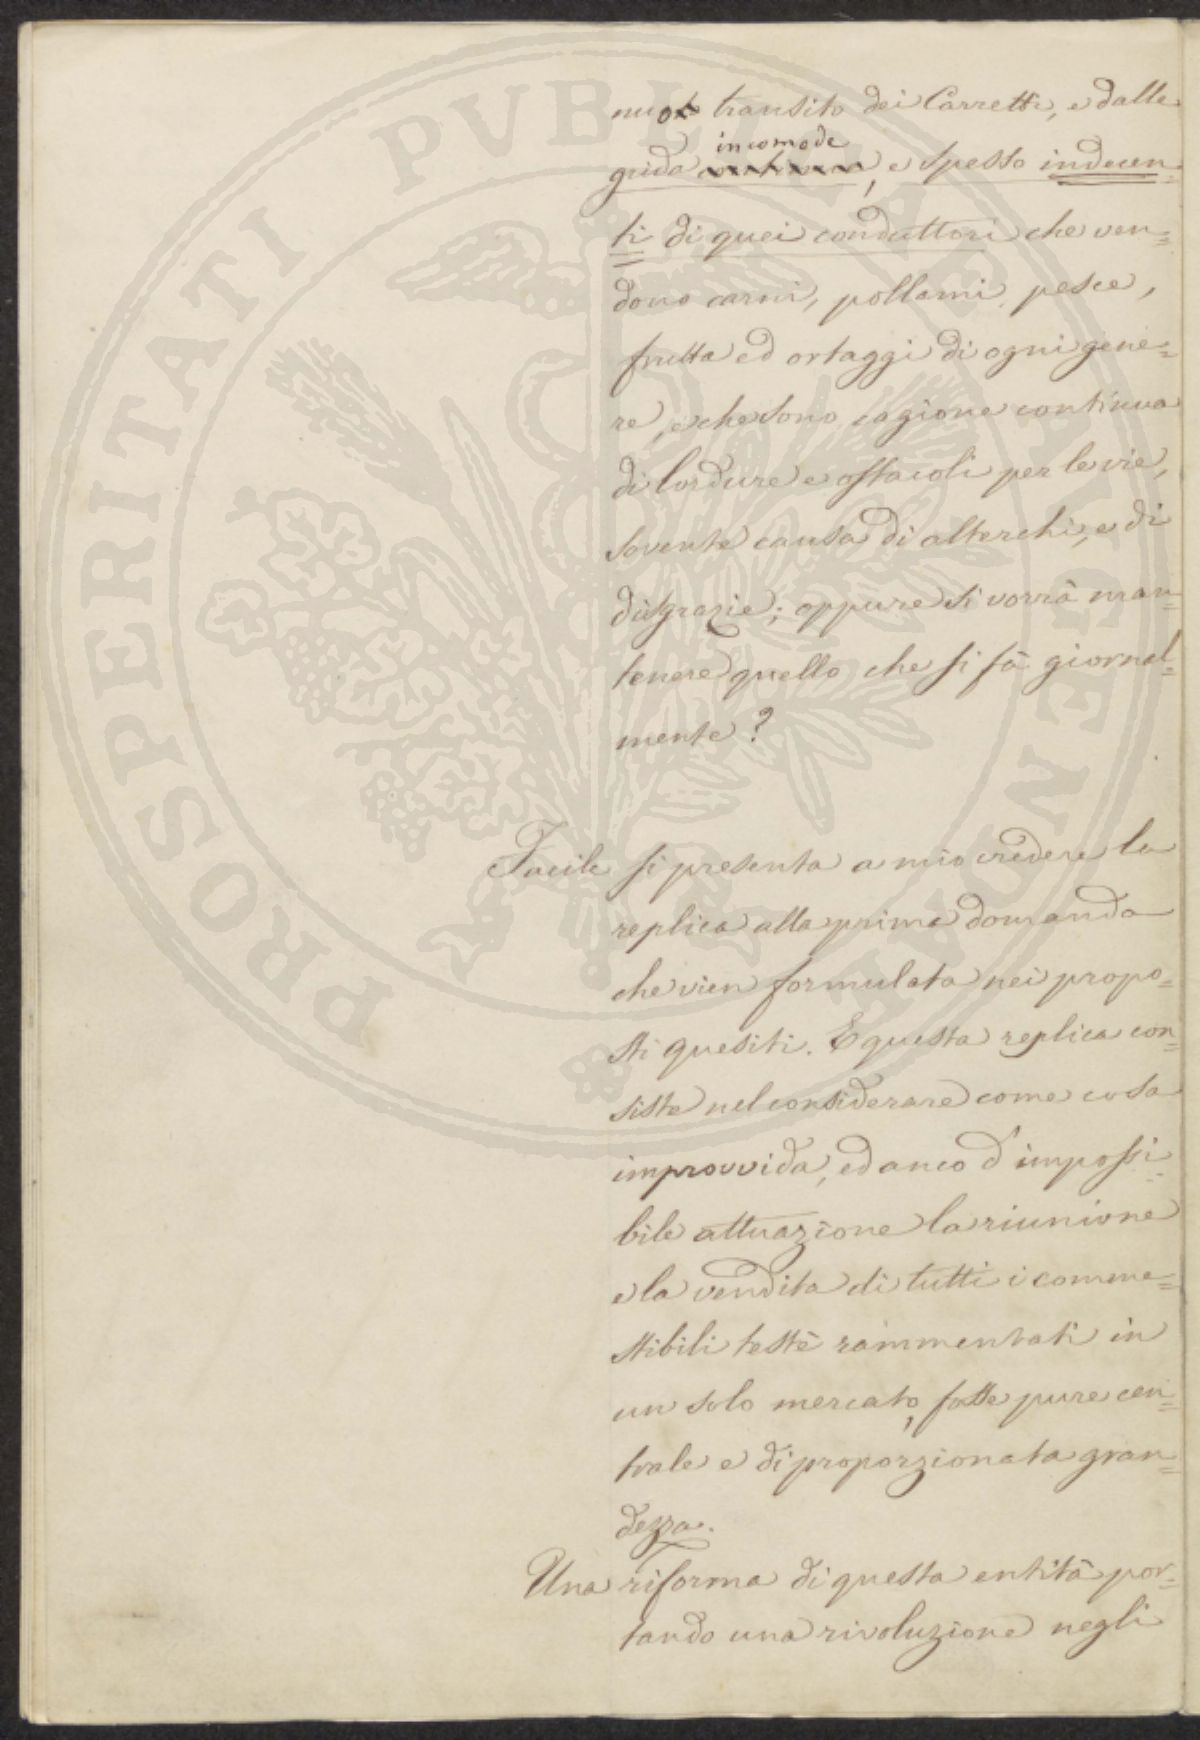 nuo transito dei Carretti, e dalle
incomode
grida, e spesso indecen=
ti di quei conduttori che ven=
dono carni, pollami, pesce,
frutta ed ortaggi di ogni gene=
re, e che sono cagione continua
di lordure e ostacoli per le vie,
sovente causa di alterchi, e di
disgrazie; oppure si vorrà man=
tenere quello che si fà giornal=
mente?
Facile si presenta a mio credere la
replica alla prima domanda
che vien formulata nei propo=
sti quesiti. E questa replica con=
siste nel considerare come cosa
improvvida, ed anco d'impossi=
bile attuazione la riunione
e la vendita di tutti i comme=
stibili testè rammentati in
un solo mercato, fosse pure cen=
trale e di proporzionata gran=
dezza.
Una riforma di questa entità por=
tando una rivoluzione negli
PROSPERITATI PVBLICAE AVGENDAE